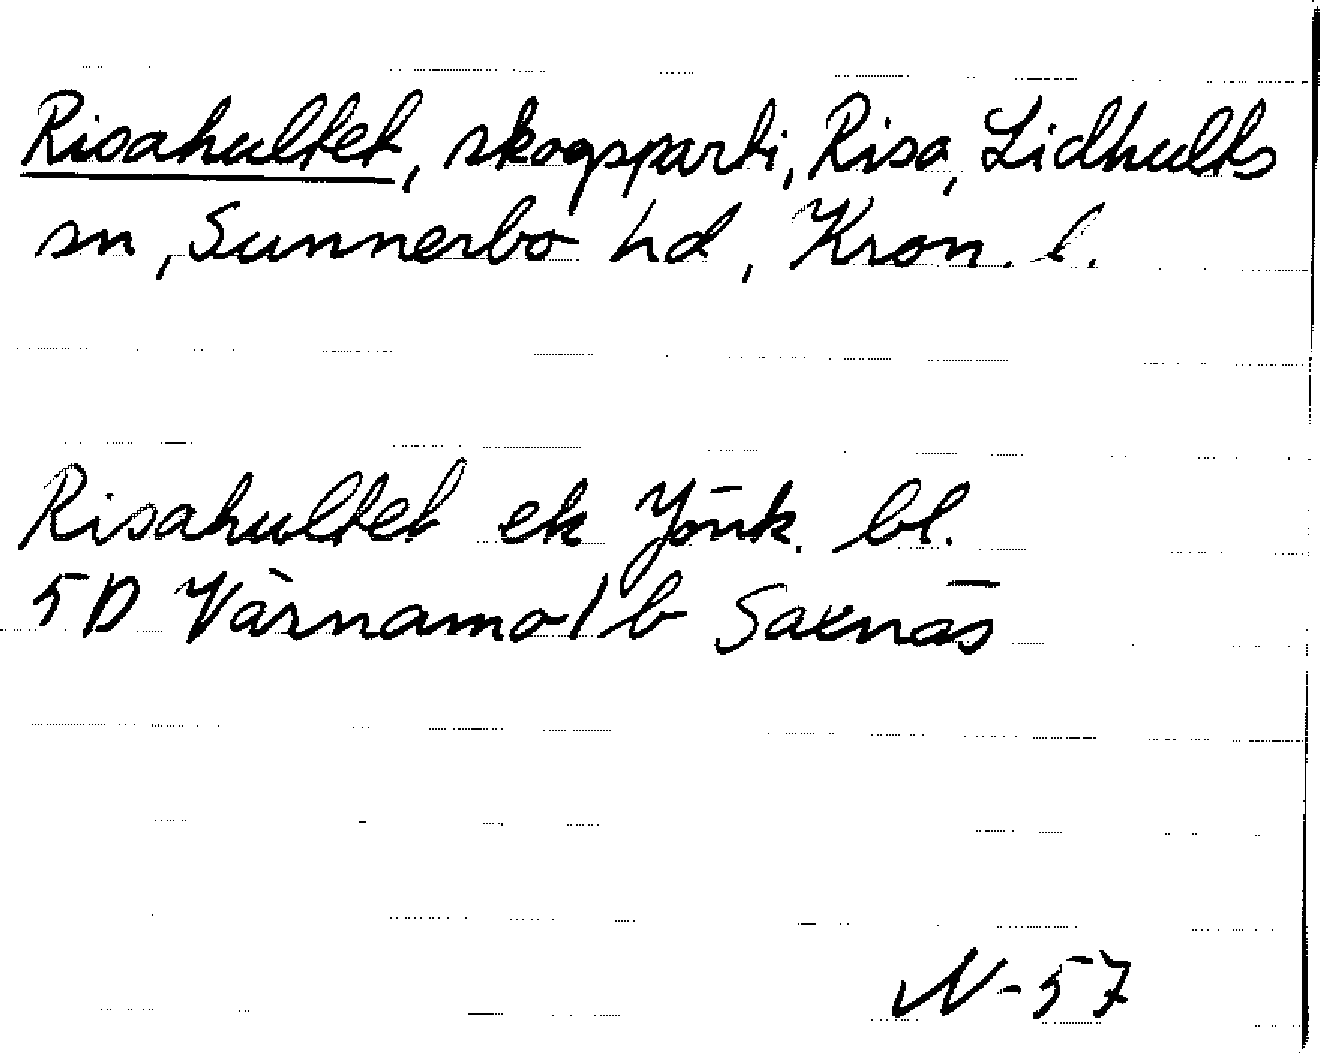 Risahultet, skogsparti, Risa, Lidhults
sn, Sunnerbo hd, Kron. l.
Risahultet ek Jönk. bl.
5D Värnamo 1 b Saxnäs
N-57